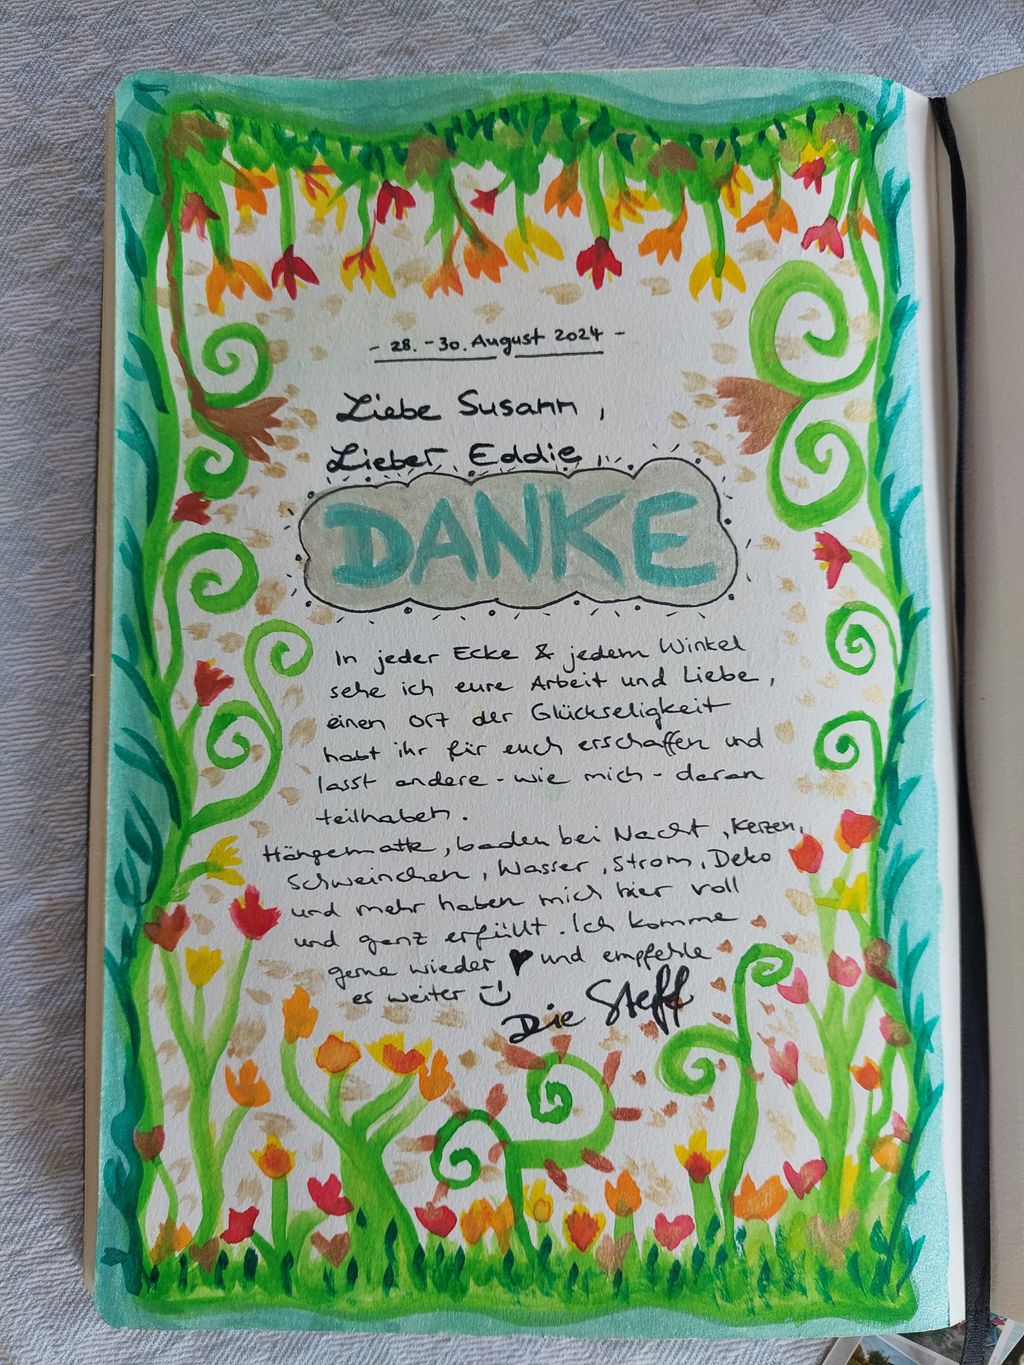 - 28. - 30. August 2024 -
Liebe Susann,
Lieber Eddie,
DANKE
In jeder Ecke & jedem Winkel
sehe ich eure Arbeit und Liebe,
einen Ort der Glückseligkeit
habt ihr für euch erschaffen und
lasst andere - wie mich - daran
teilhaben.
Hängematte, baden bei Nacht, Kerzen,
Schweinchen, Wasser, Strom, Deko
und mehr haben mich hier voll
und ganz erfüllt. Ich komme
gerne wieder ♥ und empfehle
es weiter :)
Die Steff